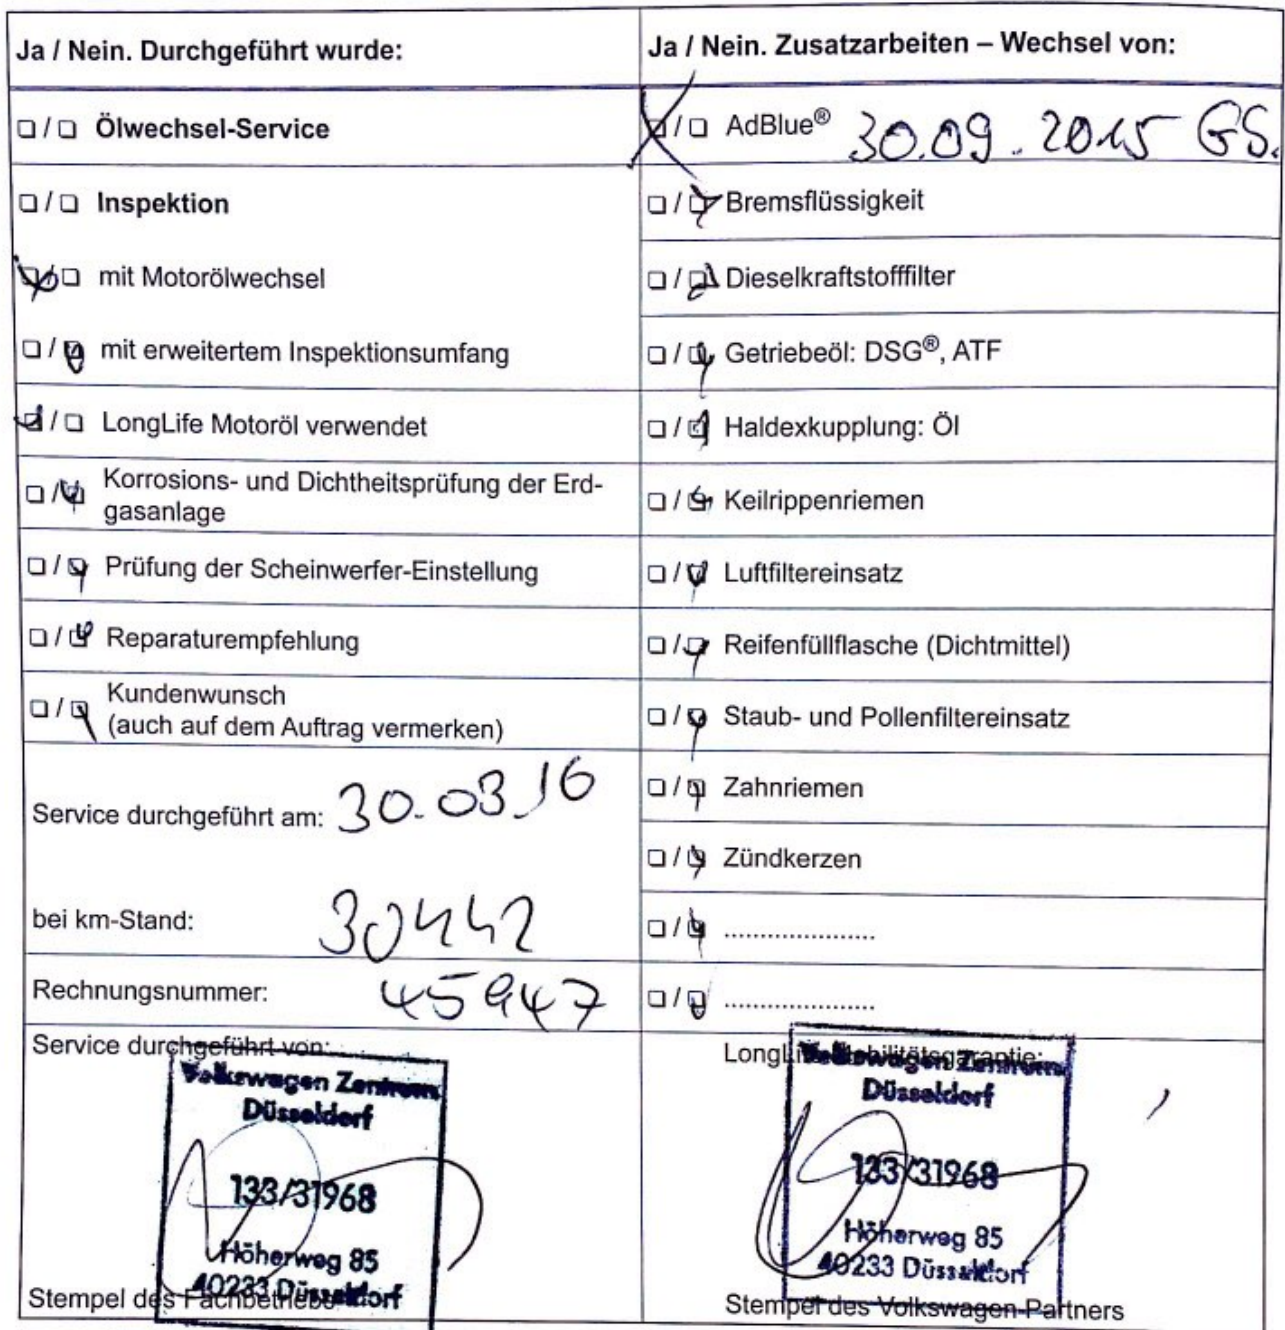 Ja / Nein. Durchgeführt wurde:
□ / □ Ölwechsel-Service
□ / □ Inspektion
□ / □ mit Motorölwechsel
□ / □ mit erweitertem Inspektionsumfang
□ / □ LongLife Motoröl verwendet
□ / □ Korrosions- und Dichtheitsprüfung der Erd-
gasanlage
□ / □ Prüfung der Scheinwerfer-Einstellung
□ / □ Reparaturempfehlung
□ / □ Kundenwunsch
(auch auf dem Auftrag vermerken)
Service durchgeführt am: 30.03.16
bei km-Stand: 30442
Rechnungsnummer: 45947
Service durchgeführt von:
Volkswagen Zentrum
Düsseldorf
133/31968
Höherweg 85
40233 Düsseldorf
Stempel des Fachbetriebs
Ja / Nein. Zusatzarbeiten – Wechsel von:
□ / □ AdBlue® 30.09.2015 GS.
□ / □ Bremsflüssigkeit
□ / □ Dieselkraftstofffilter
□ / □ Getriebeöl: DSG®, ATF
□ / □ Haldexkupplung: Öl
□ / □ Keilrippenriemen
□ / □ Luftfiltereinsatz
□ / □ Reifenfüllflasche (Dichtmittel)
□ / □ Staub- und Pollenfiltereinsatz
□ / □ Zahnriemen
□ / □ Zündkerzen
□ / □ .....................
□ / □ .....................
LongLife Mobilitätsgarantie:
Volkswagen Zentrum
Düsseldorf
133/31968
Höherweg 85
40233 Düsseldorf
Stempel des Volkswagen-Partners